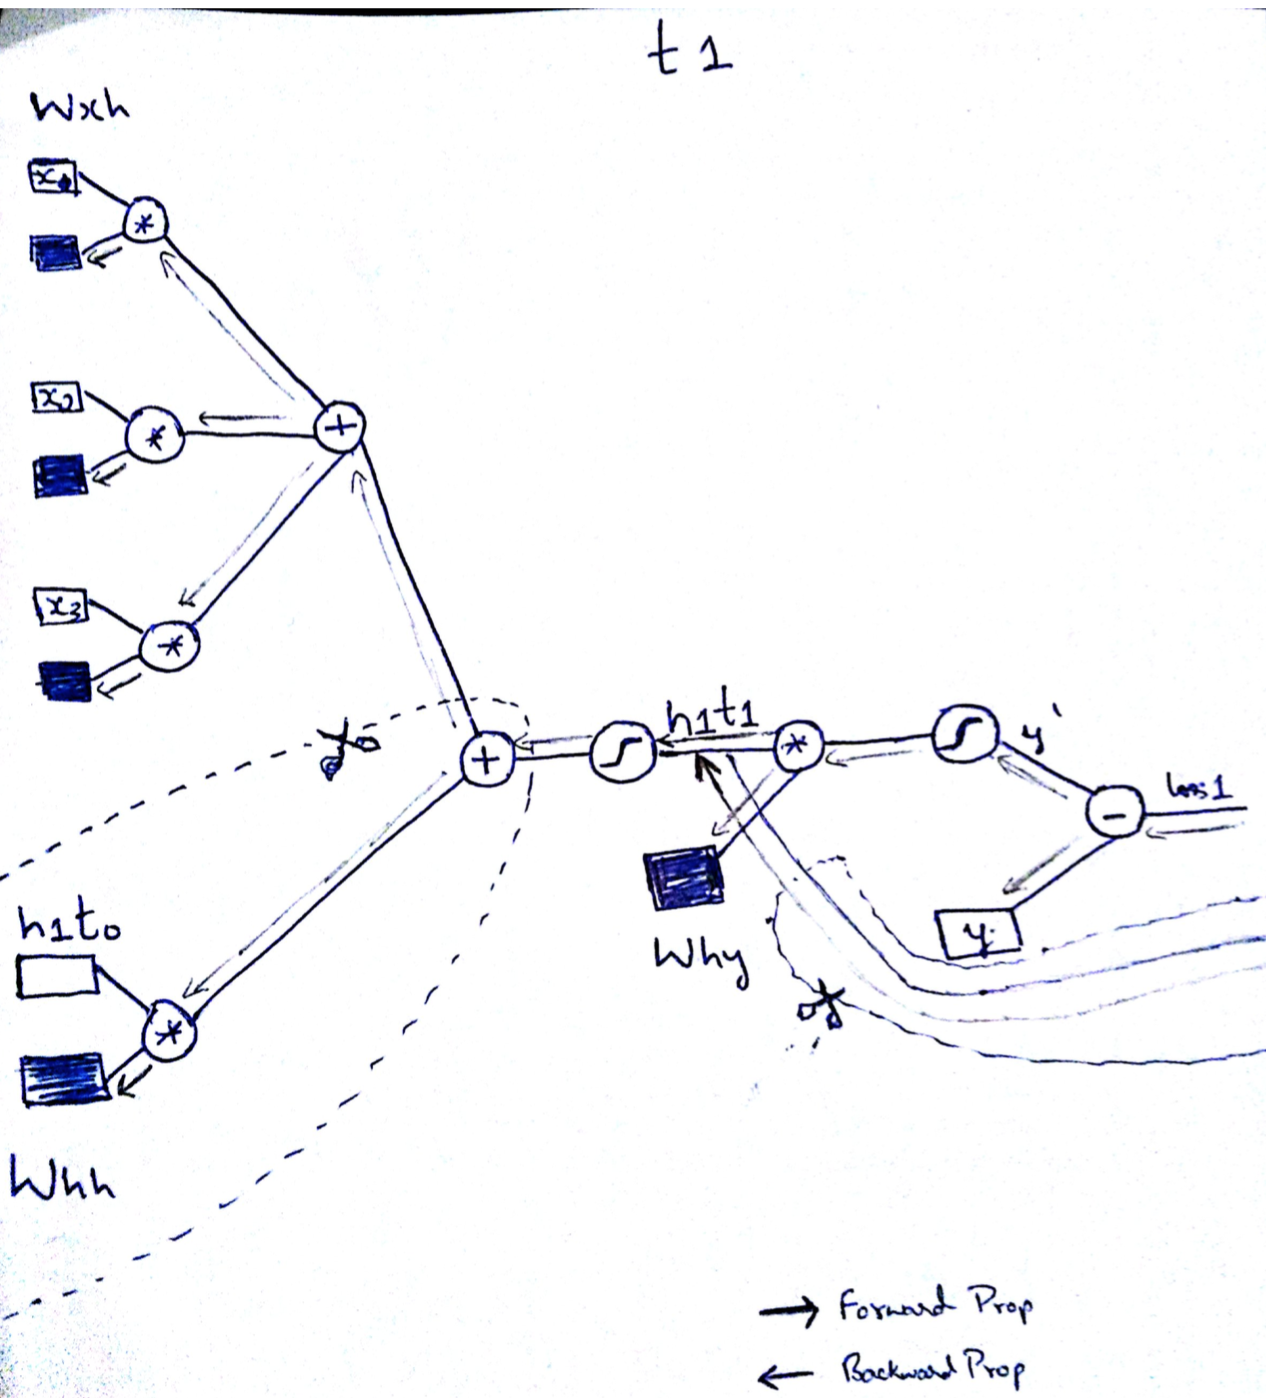 t 1
Wxh
*
x2
*
+
x3
*
h1t1
+
*
y'
loss1
-
y
h1t0
*
Why
Whh
Forward Prop
Backward Prop